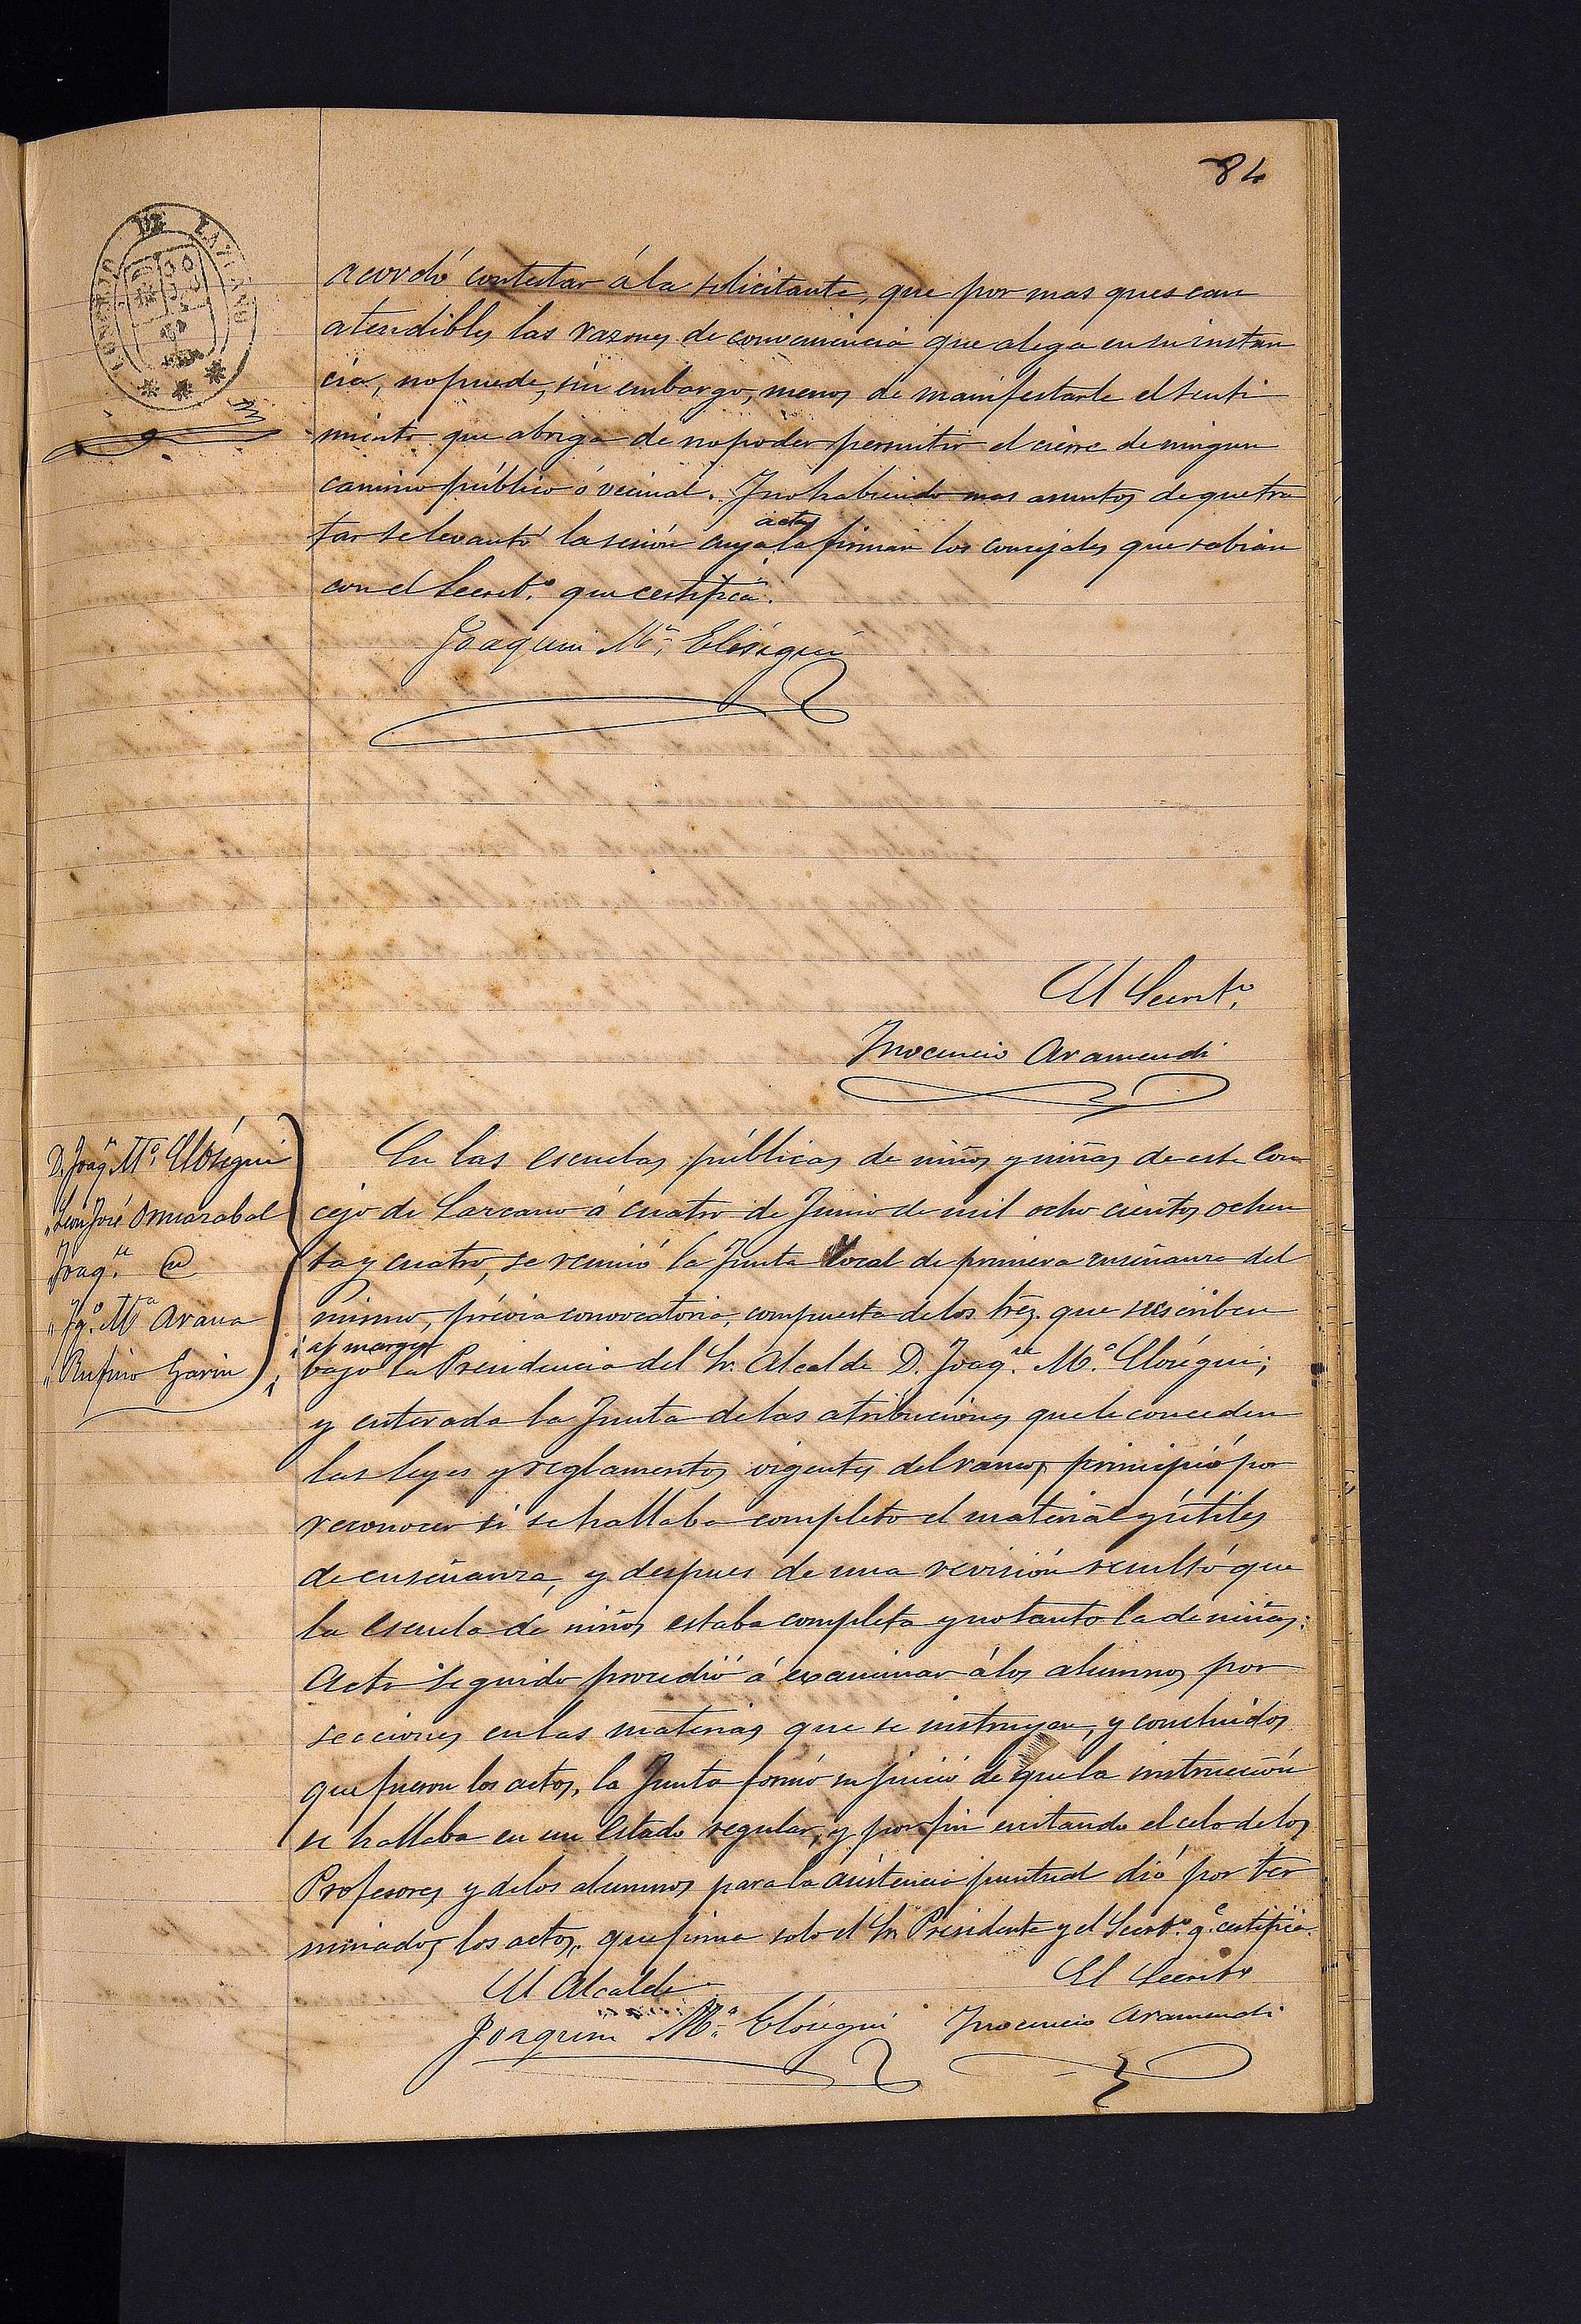 84
CONCEJO DE LAZCANO
acordó contestar á la solicitante, que por mas que sean
atendibles las razones de conveniencia que alega en su instan
cia, no puede, sin embargo, menos de manifestarle el senti
miento que abriga de no poder permitir el cierre de ningun
camino público ó vecinal. Y no habiendo mas asuntos de que tra
tar se levantó la sesión cuya acta la firman los concejales que sabian
con el Secret.º que certifica.
Joaquin M.ª Elósegui
El Secret.º
Inocencio Aramendi
D. Joaq.n M.ª Elósegui
" León José Omarabal
Joaq.n
" Ig.º M.ª Arana
" Rufino Garin
En las escuelas públicas de niños y niñas de este Con
cejo de Lazcano á cuatro de Junio de mil ocho cientos ochen
ta y cuatro, se reunió la Junta local de primera enseñanza del
mismo, prévia convocatoria, compuesta de los Sres. que suscriben
al margen
bajo la Presidencia del Sr. Alcalde D. Joaq.n M.ª Elósegui;
y enterada la Junta de las atribuciones que le conceden
las leyes y reglamentos vigentes del ramo, principió por
reconocer si se hallaba completo el material y útiles
de enseñanza, y despues de una revisión resultó que
la escuela de niños estaba completa y no tanto la de niñas:
Acto seguido procedió á examinar á los alumnos por
secciones en las materias que se instruyen, y concluidos
que fueron los actos, la Junta formó su juicio de que la instrucción
se hallaba en un estado regular, y por fin excitando el celo de los
Profesores y de los alumnos para la asistencia puntual dió por ter
minados los actos, que firma solo el Sr. Presidente y el Secret.º q.e certifica.
El Alcalde
El Secret.º
Joaquin M.ª Elósegui
Inocencio Aramendi